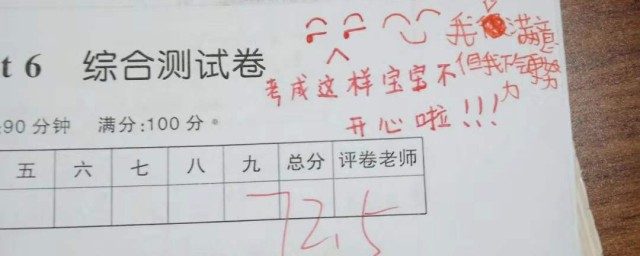 t 6 综合测试卷
我很满意
但我不会努
力
考成这样宝宝不
开心啦!!!
90分钟 满分:100分。
五 六 七 八 九 总分 评卷老师
72.5